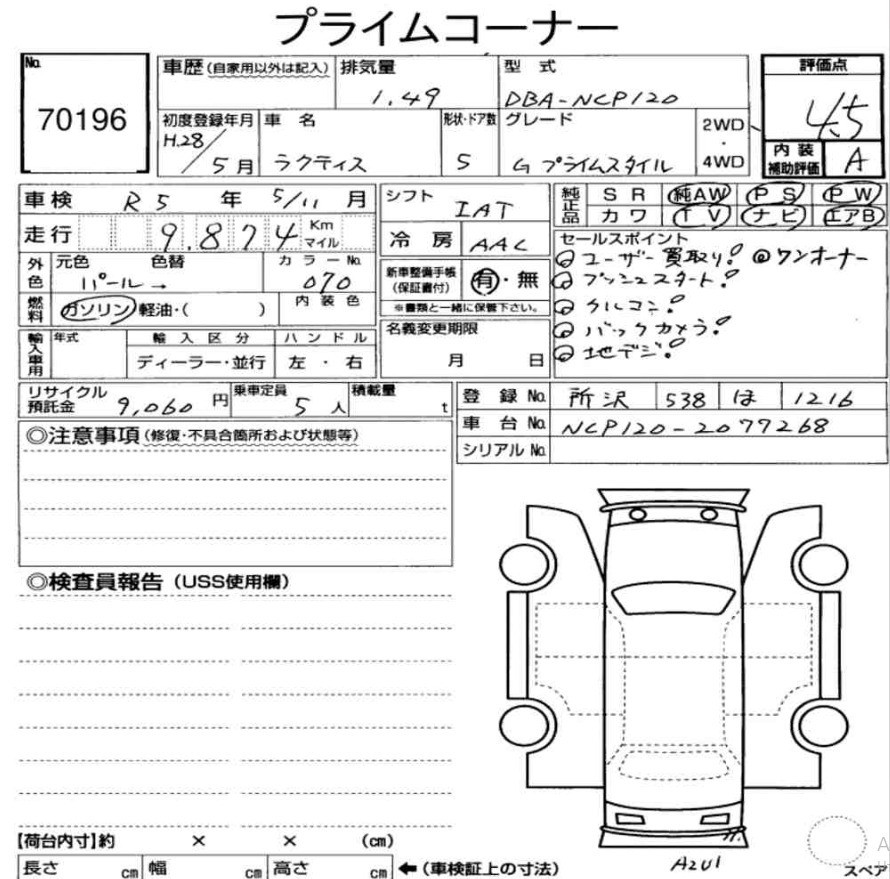 プライムコーナー
No. 70196
車歴 (自家用以外は記入) 排気量 1.49 型式 DBA-NCP120
初度登録年月 H.28/5月 車名 ラクティス 形状・ドア数 5 グレード G プライムスタイル 2WD・4WD
評価点 4.5
内装補助評価 A
車検 R5年 5/11月
走行 9,874 Km マイル
シフト IAT
冷房 AAC
純正品 SR 純AW PS PW
カワ TV ナビ エアB
外色 元色 パール → 色替 カラーNo. 070
燃料 ガソリン 軽油・( ) 内装色
新車整備手帳 (保証書付) 有・無
※書類と一緒に保管下さい。
セールスポイント
◎ユーザー買取り! ◎ワンオーナー
◎プッシュスタート!
◎クルコン!
◎バックカメラ!
◎地デジ!
輸入車用 年式 輸入区分 ディーラー・並行 ハンドル 左・右
名義変更期限 月 日
リサイクル預託金 9,060円 乗車定員 5人 積載量 t
登録No. 所沢 538 ほ 1216
車台No. NCP120-2077268
シリアルNo.
◎注意事項 (修復・不具合箇所および状態等)
◎検査員報告 (USS使用欄)
A2U1
スペア
【荷台内寸】約 × × (cm)
長さ cm 幅 cm 高さ cm ←(車検証上の寸法)